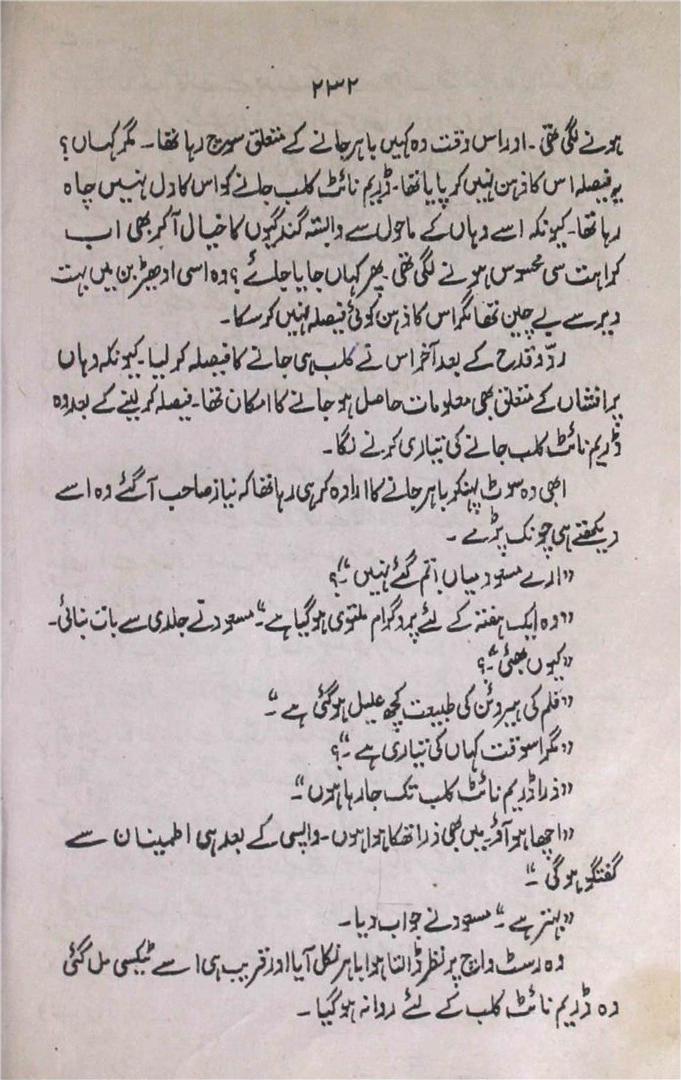 ۲۳۲
ہونے لگی تھی۔ اور اس وقت وہ کہیں باہر جانے کے متعلق سوچ رہا تھا۔ مگر کہاں؟
یہ فیصلہ اس کا ذہن نہیں کر پایا تھا۔ ڈریم نائٹ کلب جانے کو اس کا دل نہیں چاہ
رہا تھا۔ کیونکہ اسے وہاں کے ماحول سے وابستہ گندگیوں کا خیال آکر بھی اب
کراہت سی محسوس ہونے لگی تھی۔ پھر کہاں جایا جائے؟ وہ اسی ادھیڑ بن میں بہت
دیر سے بے چین تھا مگر اس کا ذہن کوئی فیصلہ نہیں کر سکا۔
ردّ و قدح کے بعد آخر اس نے کلب ہی جانے کا فیصلہ کر لیا۔ کیونکہ وہاں
پر افشاں کے متعلق بھی معلومات حاصل ہو جانے کا امکان تھا۔ فیصلہ کر لینے کے بعد وہ
ڈریم نائٹ کلب جانے کی تیاری کرنے لگا۔
ابھی وہ سوٹ پہنکر باہر جانے کا ارادہ کر ہی رہا تھا کہ نیاز صاحب آگئے وہ اسے
دیکھتے ہی چونک پڑے۔
”ارے مسعود میاں! تم گئے نہیں“؟
”وہ ایک ہفتہ کے لئے پروگرام ملتوی ہو گیا ہے۔“ مسعود نے جلدی سے بات بنائی۔
”کیوں بھئی“؟
”فلم کی ہیروئن کی طبیعت کچھ علیل ہو گئی ہے۔“
”مگر اسوقت کہاں کی تیاری ہے“؟
”ذرا ڈریم نائٹ کلب تک جا رہا ہوں“۔
”اچھا ہو آؤ۔ میں بھی ذرا تھکا ہوا ہوں۔ واپسی کے بعد ہی اطمینان سے
گفتگو ہو گی۔“
”بہتر ہے۔“ مسعود نے جواب دیا۔
وہ رسٹ واچ پر نظر ڈالتا ہوا باہر نکل آیا اور قریب ہی اسے ٹیکسی مل گئی
وہ ڈریم نائٹ کلب کے لئے روانہ ہو گیا۔